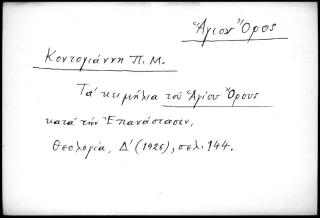 Ἅγιον Ὄρος
Κοντογιάννη Π. Μ.
Τά κειμήλια τοῦ Ἁγίου Ὄρους
κατά τήν Ἐπανάστασιν.
Θεολογία, Δ' (1926), σελ. 144.